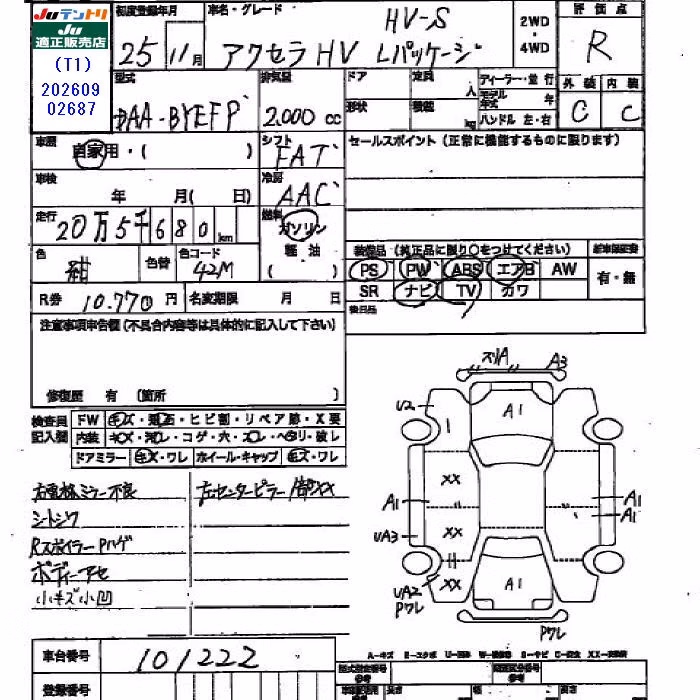 Juテントリ
Ju
適正販売店
(T1)
202609
02687
初度登録年月 車名・グレード HV-S 2WD・4WD 評価点
25 11月 アクセラHV Lパッケージ R
型式 排気量 ドア 定員 人 ディーラー・並行 外装 内装
DAA-BYEFP 2,000 cc 形状 積載 kg モデル年式 年 ハンドル 左・右 C C
車歴 自家用・( ) シフト FAT セールスポイント(正常に機能するものに限ります)
車検 年 月( 日) 冷房 AAC
走行 20万5千680km 燃料 ガソリン 軽油 ( )
色 紺 色替 色コード 42M
装備品(純正品に限り○をつけてください) 新車保証書
PS PW ABS エアB AW 有・無
SR ナビ TV カワ
R券 10.770円 名変期限 月 日 後日品
注意事項申告欄(不具合内容等は具体的に記入して下さい)
修復歴 有 (箇所 )
検査員記入欄 FW キズ・飛石・ヒビ割・リペア跡・X要
内装 キズ・汚レ・コゲ・穴・スレ・ヘタリ・破レ
ドアミラー キズ・ワレ ホイール・キャップ キズ・ワレ
右電格ミラー不良 左センターピラー
シートシワ
Rスポイラー Pハゲ
ボディーアセ
小キズ小凹
スリA A3
U2 A1
XX
A1 XX A1 A1
UA3
UA2 XX A1
Pワレ Pワレ
車台番号 101222
登録番号